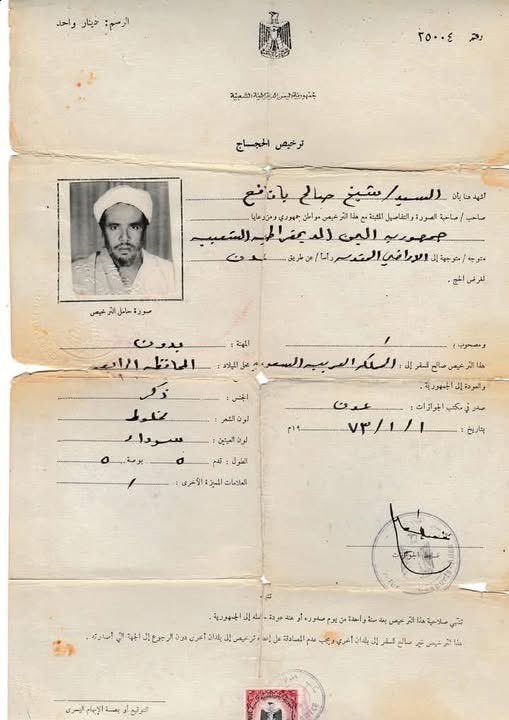 رقم ٢٥٠٠٤
الرسم: دينار واحد
جمهورية اليمن الديمقراطية الشعبية
ترخيص الحجاج
أشهد هنا بأن السيد/ شيخ صالح بافقح
صاحب/صاحبة الصورة والتفاصيل المثبتة مع هذا الترخيص مواطن جمهوري ومن رعايا
جمهورية اليمن الديمقراطية الشعبية
متوجه/متوجهة إلى الأراضي المقدسة رأساً/عن طريق عدن
لغرض الحج.
صورة حامل الترخيص
ومصحوب/
هذا الترخيص صالح للسفر إلى المملكة العربية السعودية
والعودة إلى الجمهورية.
صدر في مكتب الجوازات: عدن
بتاريخ: ١/١/٧٣ ١٩م
المهنة: بدون
محل الميلاد: المحافظة الرابعة
الجنس: ذكر
لون الشعر: مخلوط
لون العينين: سوداء
الطول: قدم ٥ بوصة ٥
العلامات المميزة الأخرى: /
ضابط الجوازات
تنتهي صلاحية هذا الترخيص بعد سنة واحدة من يوم صدوره أو عند عودة حامله إلى الجمهورية.
هذا الترخيص غير صالح للسفر إلى بلدان أخرى ويجب عدم المصادقة على إعطاء ترخيص إلى بلدان أخرى دون الرجوع إلى الجهة التي أصدرته.
التوقيع أو بصمة الإبهام اليسرى